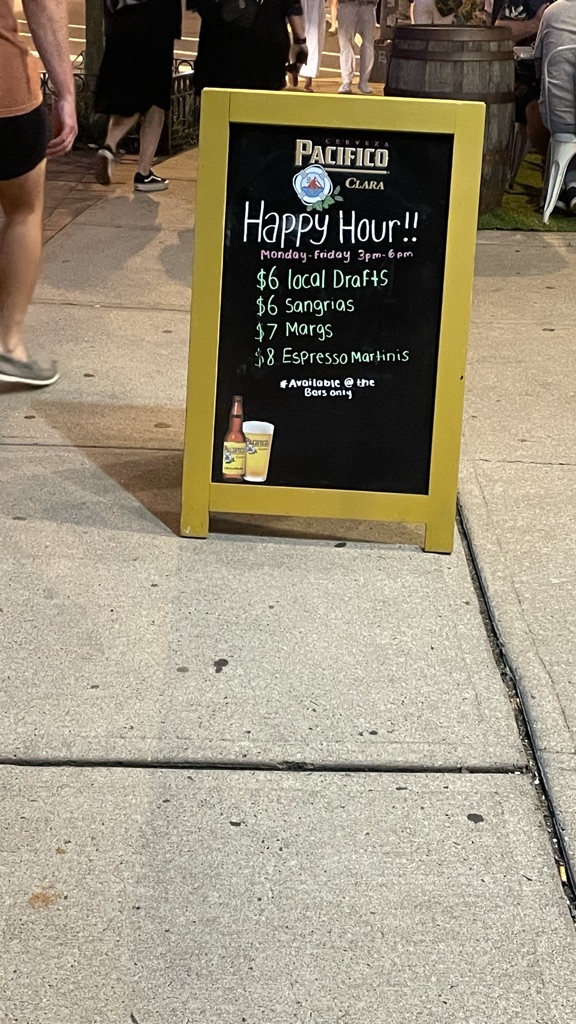 CERVEZA
PACIFICO
CLARA
Happy Hour!!
Monday-Friday 3pm-6pm
$6 local Drafts
$6 Sangrias
$7 Margs
$8 Espresso Martinis
*Available @ the
Bars only
PACIFICO
PACIFICO